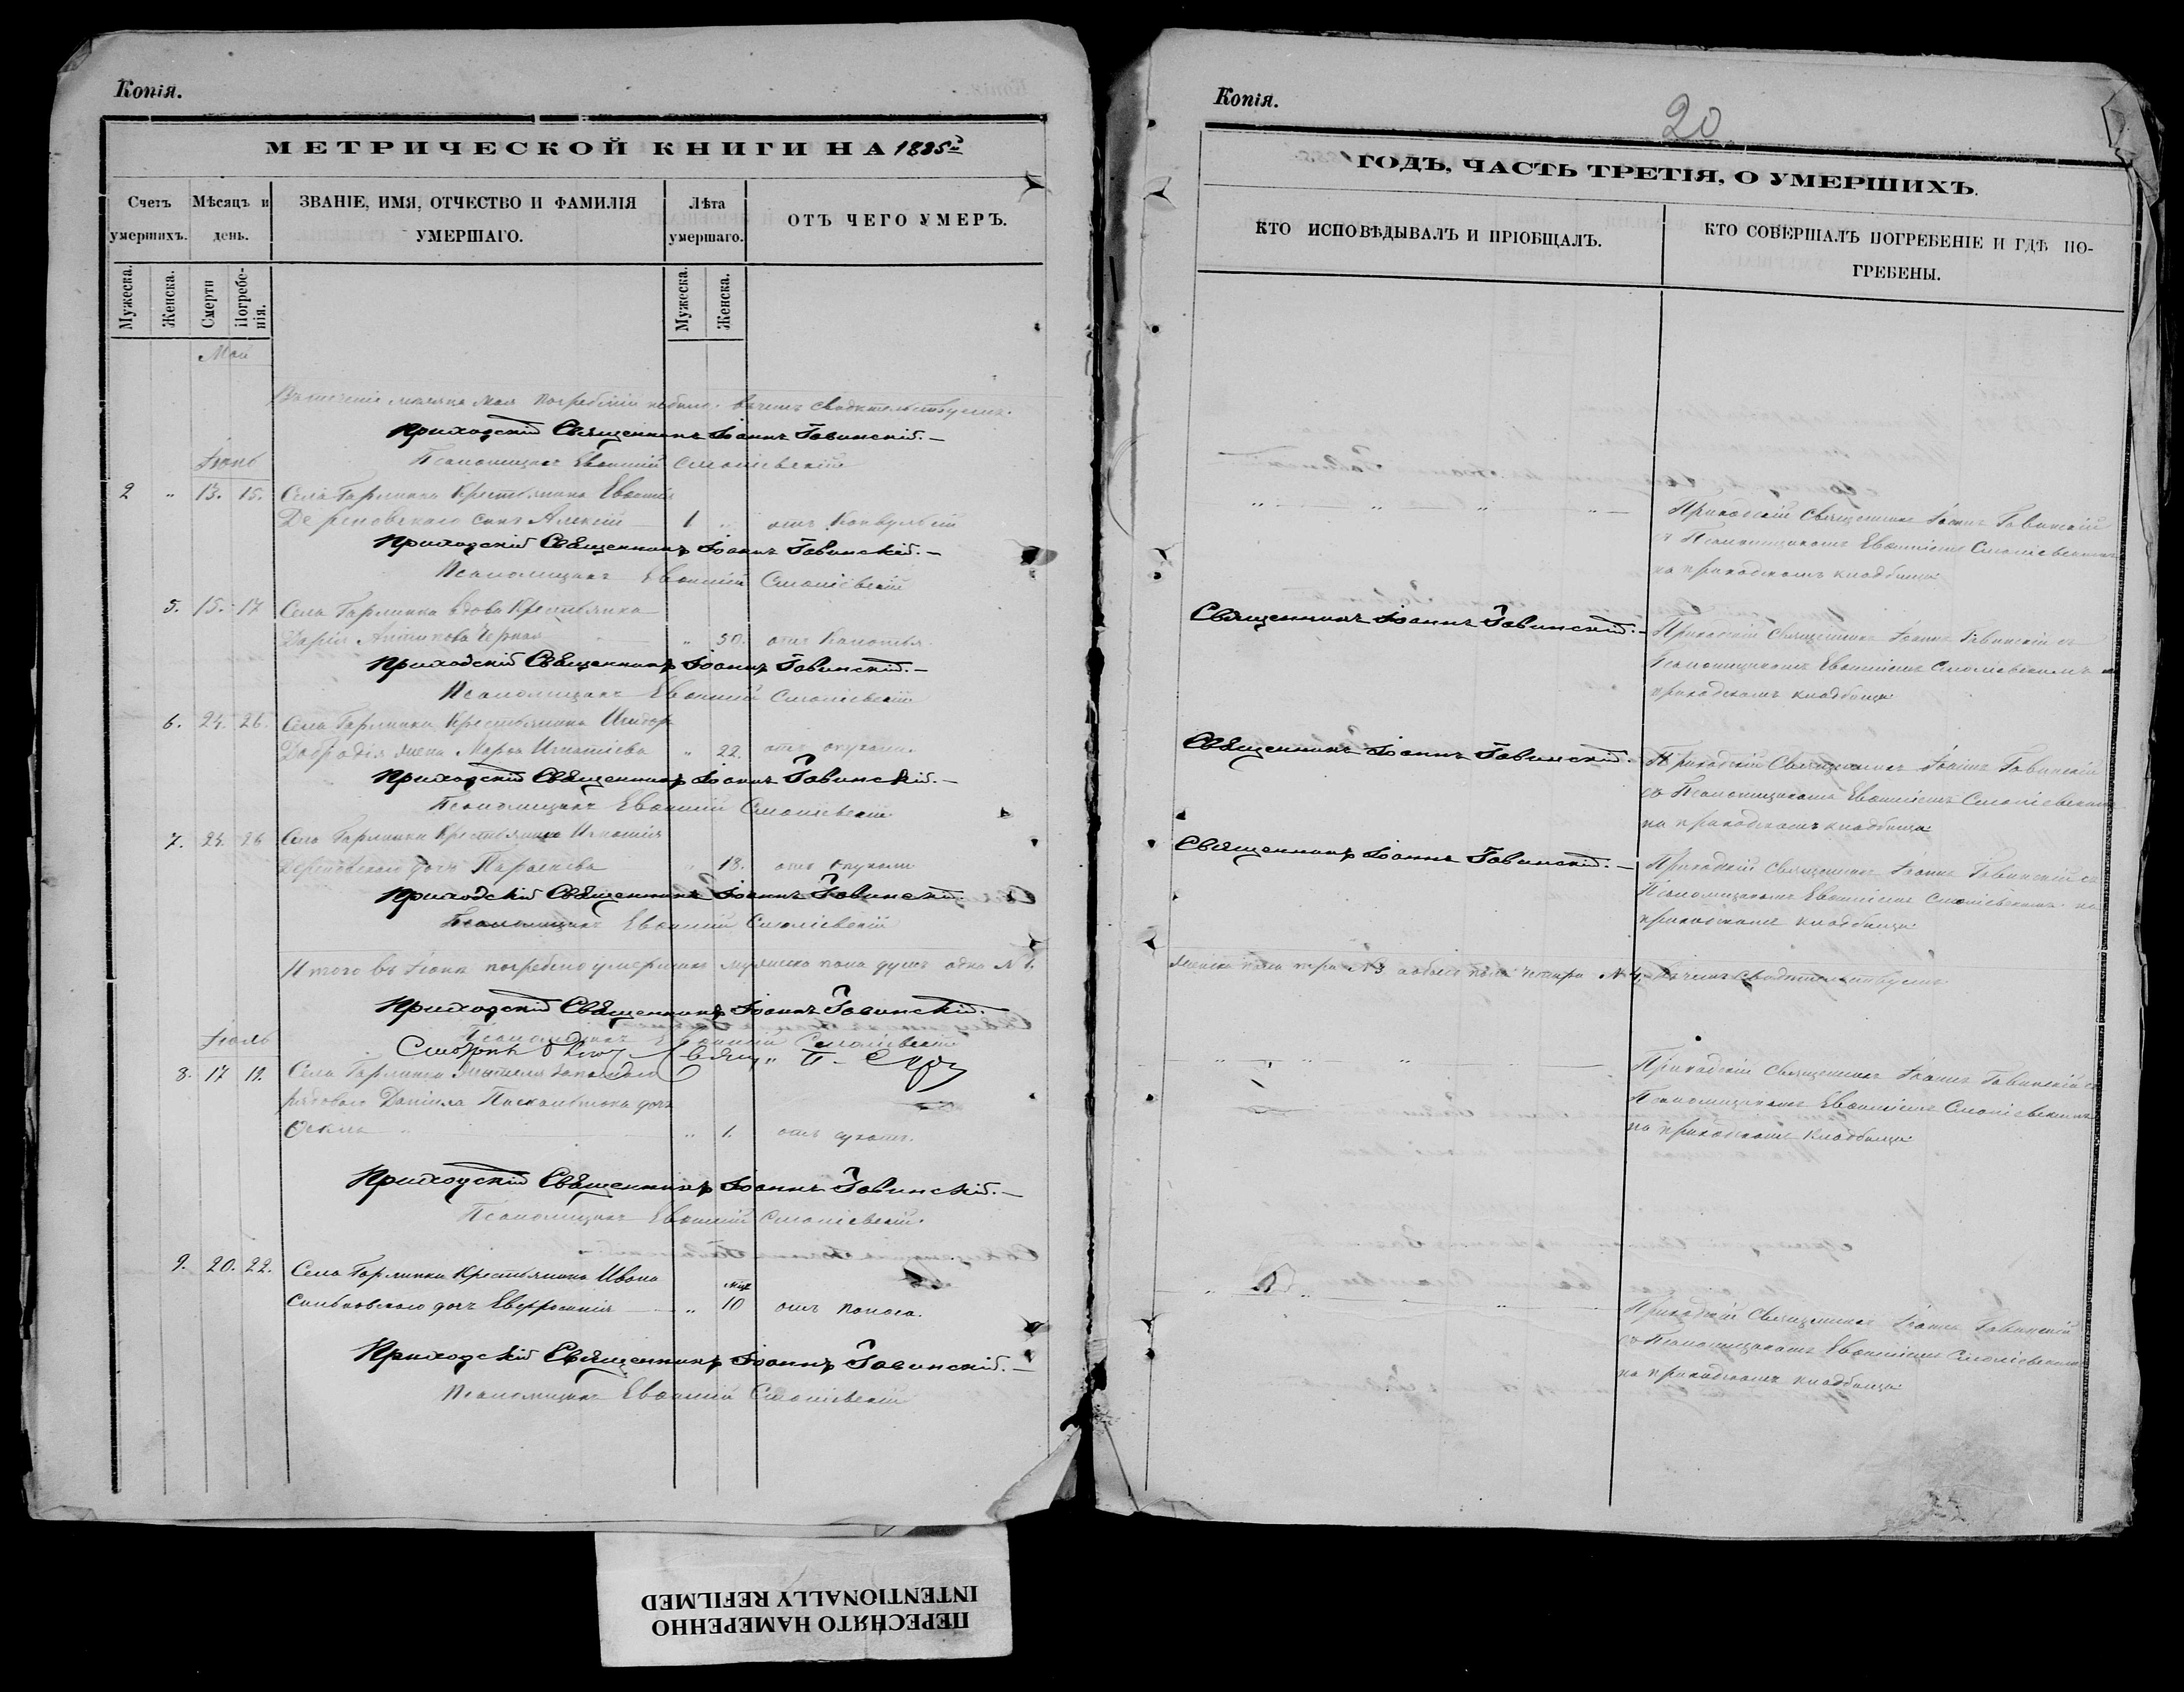 Копія.
МЕТРИЧЕСКОЙ КНИГИ НА 1885й
Счетъ умершихъ.
Мѣсяцъ и день.
ЗВАНІЕ, ИМЯ, ОТЧЕСТВО И ФАМИЛІЯ УМЕРШАГО.
Лѣта умершаго.
ОТЪ ЧЕГО УМЕРЪ.
Мужеска.
Женска.
Смерти
Погребенія.
Мужеска.
Женска.
Май
Въ теченіе мѣсяца Мая погребеній небыло. Вчемъ свидѣтельствуемъ.
Приходскій Священникъ Іоаннъ Говинскій.–
Псаломщикъ Евѳимій Смолієвскій
Іюнь
2 „ 13. 15. Села Гармаки Крестьянина Евѳимія
сынъ Алексій 1 „ отъ Конвульсій
Приходскій Священникъ Іоаннъ Говинскій.–
Псаломщикъ Евѳимій Смолієвскій
5. 15. 17 Села Гармаки вдова Крестьянка
Дарія Черная „ 50. отъ
Приходскій Священникъ Іоаннъ Говинскій.–
Псаломщикъ Евѳимій Смолієвскій
6. 24. 26. Села Гармаки Крестьянина
жена Марѳа Игнатіева „ 22. отъ опухоли.
Приходскій Священникъ Іоаннъ Говинскій.–
Псаломщикъ Евѳимій Смолієвскій
7. 24. 26 Села Гармаки Крестьянина Игнатія
дочь Параскева „ 18. отъ опухоли
Приходскій Священникъ Іоаннъ Говинскій.
Псаломщикъ Евѳимій Смолієвскій
Итого въ Іюнѣ погребено умершихъ мужеска пола душъ одна №1.
Приходскій Священникъ Іоаннъ Говинскій.
Псаломщикъ Евѳимій Смолієвскій
Іюль
8. 17 19. Села Гармаки
рядоваго Даніила дочь
„ 1. отъ
Приходскій Священникъ Іоаннъ Говинскій.–
Псаломщикъ Евѳимій Смолієвскій.
9. 20. 22. Села Гармаки Крестьянина Ивана
дочь Евфросинія „ 10 отъ поноса.
Приходскій Священникъ Іоаннъ Говинскій.–
Псаломщикъ Евѳимій Смолієвскій
Копія.
20
ГОДЪ, ЧАСТЬ ТРЕТІЯ, О УМЕРШИХЪ.
КТО ИСПОВѢДЫВАЛЪ И ПРІОБЩАЛЪ.
КТО СОВЕРШАЛЪ ПОГРЕБЕНІЕ И ГДѢ ПОГРЕБЕНЫ.
Приходскій Священникъ Іоаннъ Говинскій
съ Псаломщикомъ Евѳиміемъ Смолієвскимъ
на приходскомъ кладбищѣ
Священникъ Іоаннъ Говинскій.–
Приходскій Священникъ Іоаннъ Говинскій съ
Псаломщикомъ Евѳиміемъ Смолієвскимъ на
приходскомъ кладбищѣ
Священникъ Іоаннъ Говинскій.
Приходскій Священникъ Іоаннъ Говинскій
съ Псаломщикомъ Евѳиміемъ Смолієвскимъ
на приходскомъ кладбищѣ
Священникъ Іоаннъ Говинскій.–
Приходскій Священникъ Іоаннъ Говинскій съ
Псаломщикомъ Евѳиміемъ Смолієвскимъ на
приходскомъ кладбищѣ
женска пола три №3 а обоего пола четыри №4, Вчемъ свидѣтельствуемъ
Приходскій Священникъ Іоаннъ Говинскій съ
Псаломщикомъ Евѳиміемъ Смолієвскимъ
на приходскомъ кладбищѣ
Приходскій Священникъ Іоаннъ Говинскій
съ Псаломщикомъ Евѳиміемъ Смолієвскимъ
на приходскомъ кладбищѣ
ПЕРЕСНЯТО НАМЕРЕННО
INTENTIONALLY REFILMED